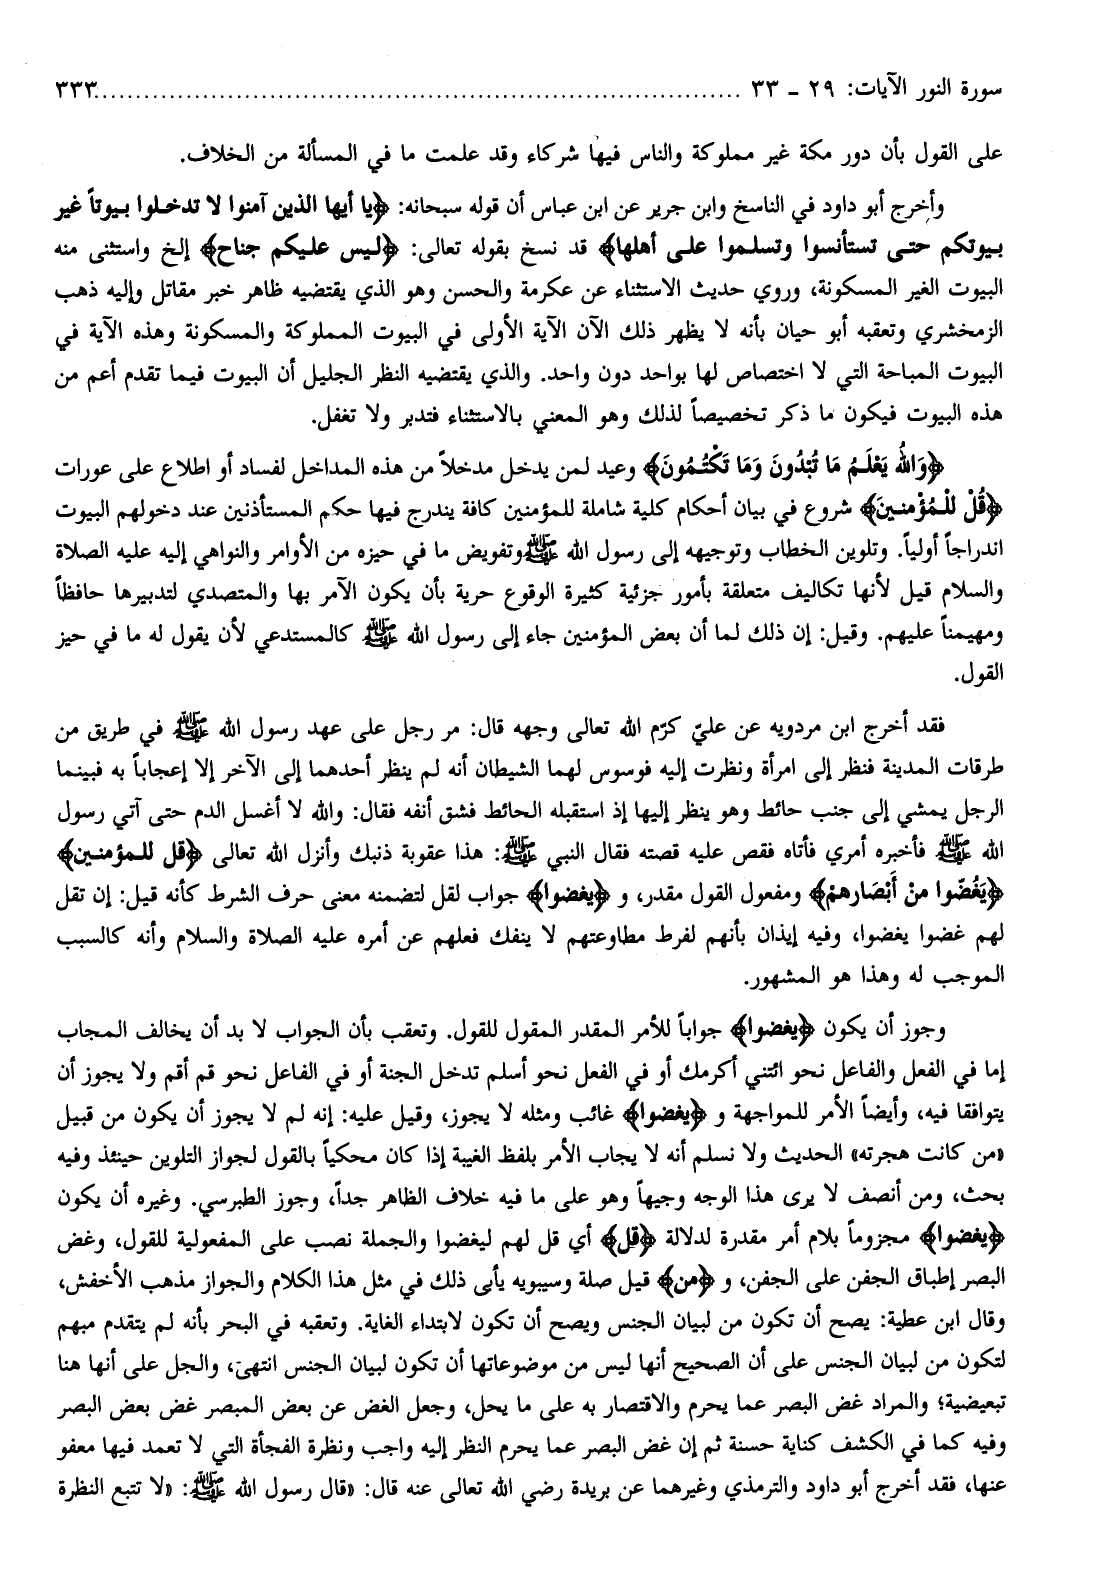 سورة النور الآيات: ٢٩ ـ ٣٣ ........................................................................... ٣٣٣
على القول بأن دور مكة غير مملوكة والناس فيها شركاء وقد علمت ما في المسألة من الخلاف.
وأخرج أبو داود في الناسخ وابن جرير عن ابن عباس أن قوله سبحانه: ﴿يا أيها الذين آمنوا لا تدخلوا بيوتاً غير
بيوتكم حتى تستأنسوا وتسلموا على أهلها﴾ قد نسخ بقوله تعالى: ﴿ليس عليكم جناح﴾ إلخ واستثنى منه
البيوت الغير المسكونة، وروي حديث الاستثناء عن عكرمة والحسن وهو الذي يقتضيه ظاهر خبر مقاتل وإليه ذهب
الزمخشري وتعقبه أبو حيان بأنه لا يظهر ذلك الآن الآية الأولى في البيوت المملوكة والمسكونة وهذه الآية في
البيوت المباحة التي لا اختصاص لها بواحد دون واحد. والذي يقتضيه النظر الجليل أن البيوت فيما تقدم أعم من
هذه البيوت فيكون ما ذكر تخصيصاً لذلك وهو المعني بالاستثناء فتدبر ولا تغفل.
﴿وَاللَّهُ يَعْلَمُ مَا تُبْدُونَ وَمَا تَكْتُمُونَ﴾ وعيد لمن يدخل مدخلاً من هذه المداخل لفساد أو اطلاع على عورات
﴿قُلْ لِلْمُؤْمنينَ﴾ شروع في بيان أحكام كلية شاملة للمؤمنين كافة يندرج فيها حكم المستأذنين عند دخولهم البيوت
اندراجاً أولياً. وتلوين الخطاب وتوجيهه إلى رسول الله ﷺ وتفويض ما في حيزه من الأوامر والنواهي إليه عليه الصلاة
والسلام قيل لأنها تكاليف متعلقة بأمور جزئية كثيرة الوقوع حرية بأن يكون الآمر بها والمتصدي لتدبيرها حافظاً
ومهيمناً عليهم. وقيل: إن ذلك لما أن بعض المؤمنين جاء إلى رسول الله ﷺ كالمستدعي لأن يقول له ما في حيز
القول.
فقد أخرج ابن مردويه عن عليّ كرّم الله تعالى وجهه قال: مر رجل على عهد رسول الله ﷺ في طريق من
طرقات المدينة فنظر إلى امرأة ونظرت إليه فوسوس لهما الشيطان أنه لم ينظر أحدهما إلى الآخر إلا إعجاباً به فبينما
الرجل يمشي إلى جنب حائط وهو ينظر إليها إذ استقبله الحائط فشق أنفه فقال: والله لا أغسل الدم حتى آتي رسول
الله ﷺ فأخبره أمري فأتاه فقص عليه قصته فقال النبي ﷺ: هذا عقوبة ذنبك وأنزل الله تعالى ﴿قل للمؤمنين﴾
﴿يَغُضّوا منْ أَبْصَارهمْ﴾ ومفعول القول مقدر، و ﴿يغضوا﴾ جواب لقل لتضمنه معنى حرف الشرط كأنه قيل: إن تقل
لهم غضوا يغضوا، وفيه إيذان بأنهم لفرط مطاوعتهم لا ينفك فعلهم عن أمره عليه الصلاة والسلام وأنه كالسبب
الموجب له وهذا هو المشهور.
وجوز أن يكون ﴿يغضوا﴾ جواباً للأمر المقدر المقول للقول. وتعقب بأن الجواب لا بد أن يخالف المجاب
إما في الفعل والفاعل نحو ائتني أكرمك أو في الفعل نحو أسلم تدخل الجنة أو في الفاعل نحو قم أقم ولا يجوز أن
يتوافقا فيه، وأيضاً الأمر للمواجهة و ﴿يغضوا﴾ غائب ومثله لا يجوز، وقيل عليه: إنه لم لا يجوز أن يكون من قبيل
«من كانت هجرته» الحديث ولا نسلم أنه لا يجاب الأمر بلفظ الغيبة إذا كان محكياً بالقول لجواز التلوين حينئذ وفيه
بحث، ومن أنصف لا يرى هذا الوجه وجيهاً وهو على ما فيه خلاف الظاهر جداً، وجوز الطبرسي. وغيره أن يكون
﴿يغضوا﴾ مجزوماً بلام أمر مقدرة لدلالة ﴿قل﴾ أي قل لهم ليغضوا والجملة نصب على المفعولية للقول، وغض
البصر إطباق الجفن على الجفن، و ﴿من﴾ قيل صلة وسيبويه يأبى ذلك في مثل هذا الكلام والجواز مذهب الأخفش،
وقال ابن عطية: يصح أن تكون من لبيان الجنس ويصح أن تكون لابتداء الغاية. وتعقبه في البحر بأنه لم يتقدم مبهم
لتكون من لبيان الجنس على أن الصحيح أنها ليس من موضوعاتها أن تكون لبيان الجنس انتهى، والجل على أنها هنا
تبعيضية؛ والمراد غض البصر عما يحرم والاقتصار به على ما يحل، وجعل الغض عن بعض المبصر غض بعض البصر
وفيه كما في الكشف كناية حسنة ثم إن غض البصر عما يحرم النظر إليه واجب ونظرة الفجأة التي لا تعمد فيها معفو
عنها، فقد أخرج أبو داود والترمذي وغيرهما عن بريدة رضي الله تعالى عنه قال: «قال رسول الله ﷺ: «لا تتبع النظرة